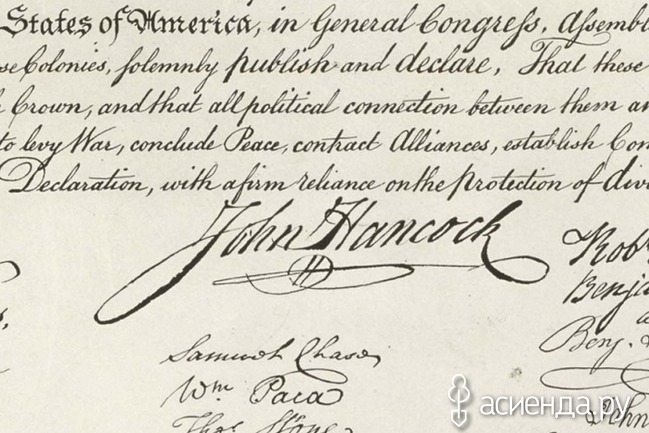 States of America, in General Congress, Assemb
se Colonies, solemnly publish and declare, That these
Crown, and that all political connection between them an
to levy War, conclude Peace, contract Alliances, establish Com
Declaration, with a firm reliance on the protection of div
John Hancock
Rob
Benja
Samuel Chase
Benj.
Wm. Paca
Thos. Stone
John
асиенда.ру